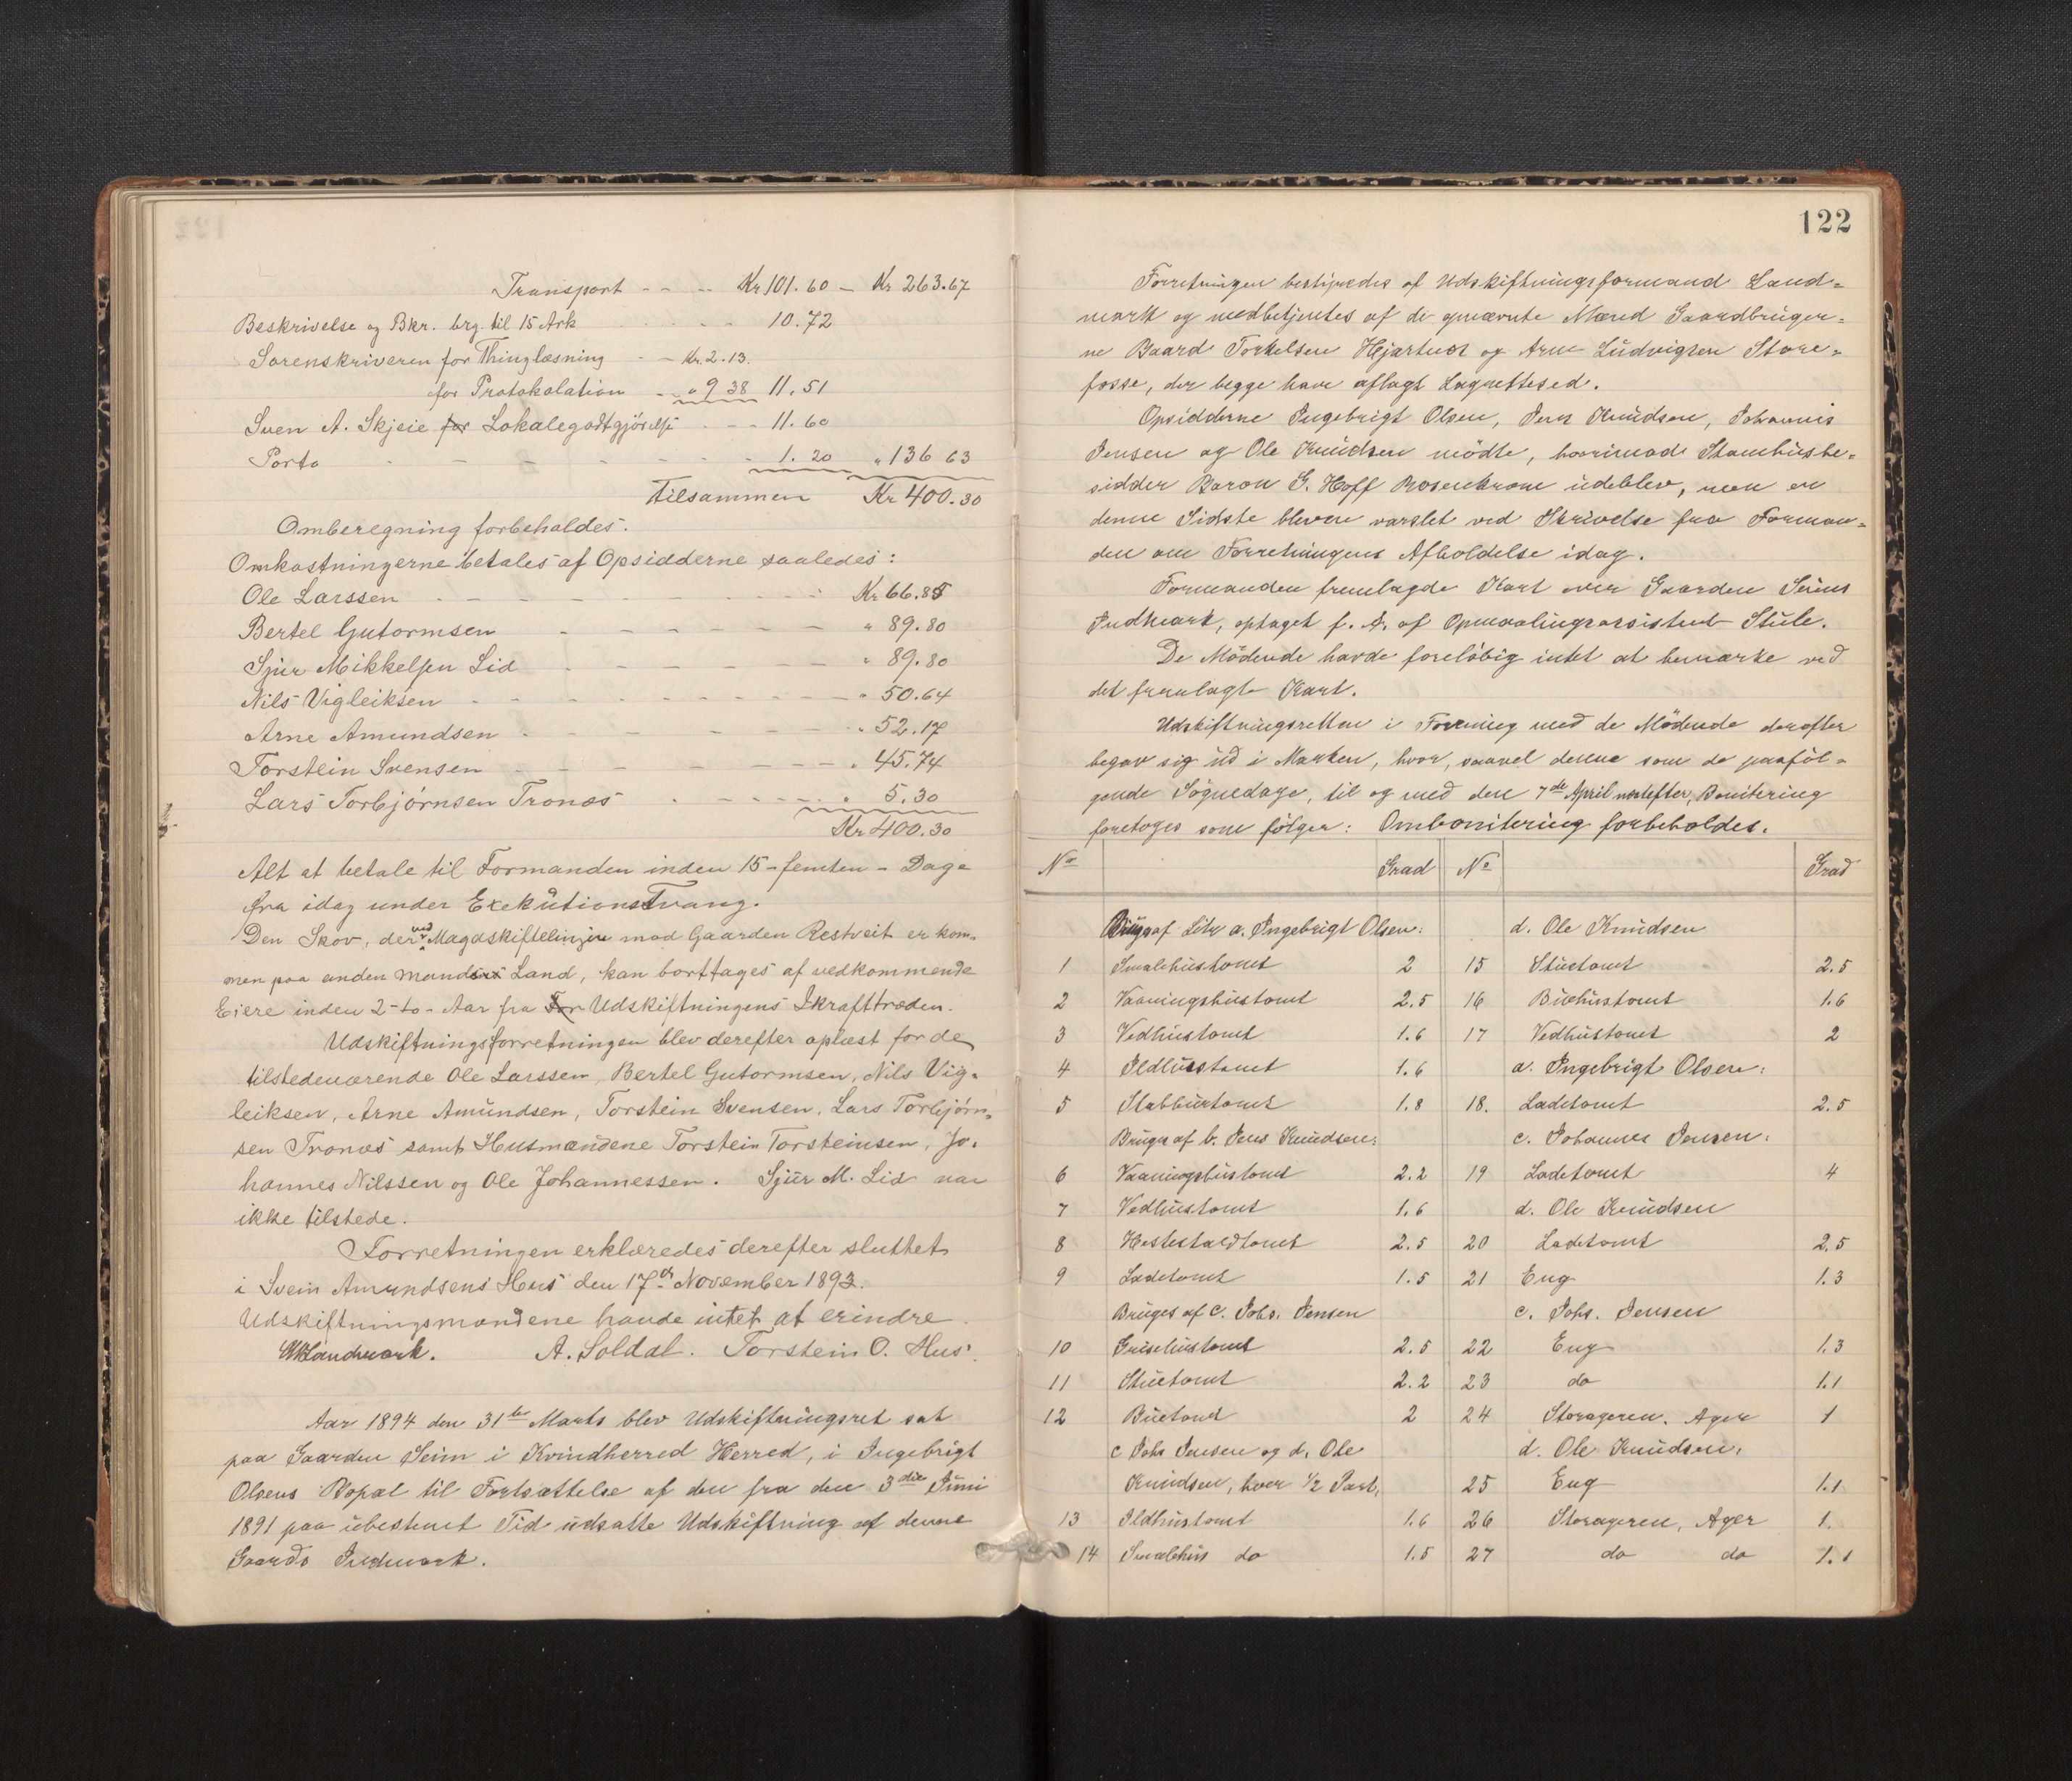 Transport - - - Kr 101.60 - Kr 263.67
Beskrivelse og Bkr. brg. til 15 Ark - - - 10.72
Sorenskriveren for Thinglæsning - - Kr. 2.13.
for Protokolation - - " 9 38 11.51
Sven A. Skjeie for Lokalegodtgjörelse - - - 11.60
Porto - - - - - 1.20 " 136 63
Tilsammen Kr 400.30
Omberegning forbeholdes.
Omkostningerne betales af Opsidderne saaledes:
Ole Larssen - - - - - Kr 66.85
Bertel Gutormsen - - - - - " 89.80
Sjur Mikkelsen Lid - - - - - " 89.80
Nils Vigleiksen - - - - - " 50.64
Arne Amundsen - - - - - " 52.17
Torstein Svensen - - - - - " 45.74
Lars Torbjørnsen Tronæs - - - - - " 5.30
Kr 400.30
Alt at betale til Formanden inden 15-femten-Dage
fra idag under Exekutionstvang.
Den Skov, der ved Magaskiftelinjen mod Gaarden Restveit er kom-
men paa anden mands Land, kan borttages af vedkommende
Eiere inden 2-to-Aar fra For Udskiftningens Ikrafttræden.
Udskiftningsforretningen blev derefter oplæst for de
tilstedeværende Ole Larssen, Bertel Gutormsen, Nils Vig-
leiksen, Arne Amundsen, Torstein Svensen, Lars Torbjørn-
sen Tronæs samt Husmændene Torstein Torsteinsen, Jo-
hannes Nilssen og Ole Johannessen. Sjur M. Lid var
ikke tilstede.
Forretningen erklæredes derefter sluttet
i Svein Amundsens Hus den 17de November 1893.
Udskiftningsmændene havde intet at erindre.
Landmark. A. Soldal. Torstein O. Hus.
Aar 1894 den 31te Marts blev Udskiftningsret sat
paa Gaarden Seim i Kvindherred Herred, i Ingebrigt
Olsens Bopæl til Fortsættelse af den fra den 3die Juni
1891 paa ubestemt Tid udsatte Udskiftning af denne
Gaards Indmark.
122
Forretningen bestyredes af Udskiftningsformand Land-
mark og medbetjentes af de opnævnte Mænd Gaardbruger-
ne Baard Torkelsen Hjartnes og Arne Ludvigsen Store-
fosse, der begge have aflagt Lagrettesed.
Opsidderne Ingebrigt Olsen, Jens Knudsen, Johannes
Jensen og Ole Knudsen mödte, hvorimod Stamhusbe-
sidder Baron G. Hoff Rosenkrone udeblev, men er
denne Sidste bleven varslet ved Skrivelse fra Forman-
den om Forretningens Afholdelse idag.
Formanden fremlagde Kart over Gaarden Seims
Indmark, optaget f. A. af Opmaalingsassistent Stule.
De Mödende havde foreløbig intet at bemærke ved
det fremlagte Kart.
Udskiftningsretten i Forening med de Mödende derefter
begav sig ud i Marken, hvor, saavel denne som de paaföl-
gende Sögnedage, til og med den 7de April næstefter, Bonitering
foretoges som følger: Ombonitering forbeholdes.
No Grad No Grad
Bruges af Litr a. Ingebrigt Olsen: d. Ole Knudsen
1 Smalehustomt 2 15 Stuetomt 2.5
2 Vaaningshustomt 2.5 16 Buehustomt 1.6
3 Vedhustomt 1.6 17 Vedhustomt 2
4 Ildhustomt 1.6 a. Ingebrigt Olsen:
5 Stabburtomt 1.8 18. Ladetomt 2.5
Bruges af b. Jens Knudsen: c. Johannes Jensen:
6 Vaaningshustomt 2.2 19 Ladetomt 4
7 Vedhustomt 1.6 d. Ole Knudsen
8 Hestestaldtomt 2.5 20 Ladetomt 2.5
9 Ladetomt 1.5 21 Eng 1.3
Bruges af c. Johs. Jensen c. Johs. Jensen
10 Grisehustomt 2.5 22 Eng 1.3
11 Stuetomt 2.2 23 do 1.1
12 Buetomt 2 24 Storageren, Ager 1
c Johs Jensen og d. Ole d. Ole Knudsen.
Knudsen, hver 1/2 Part, 25 Eng 1.1
13 Ildhustomt 1.6 26 Storageren, Ager 1.
14 Smalehus do 1.5 27 do do 1.1